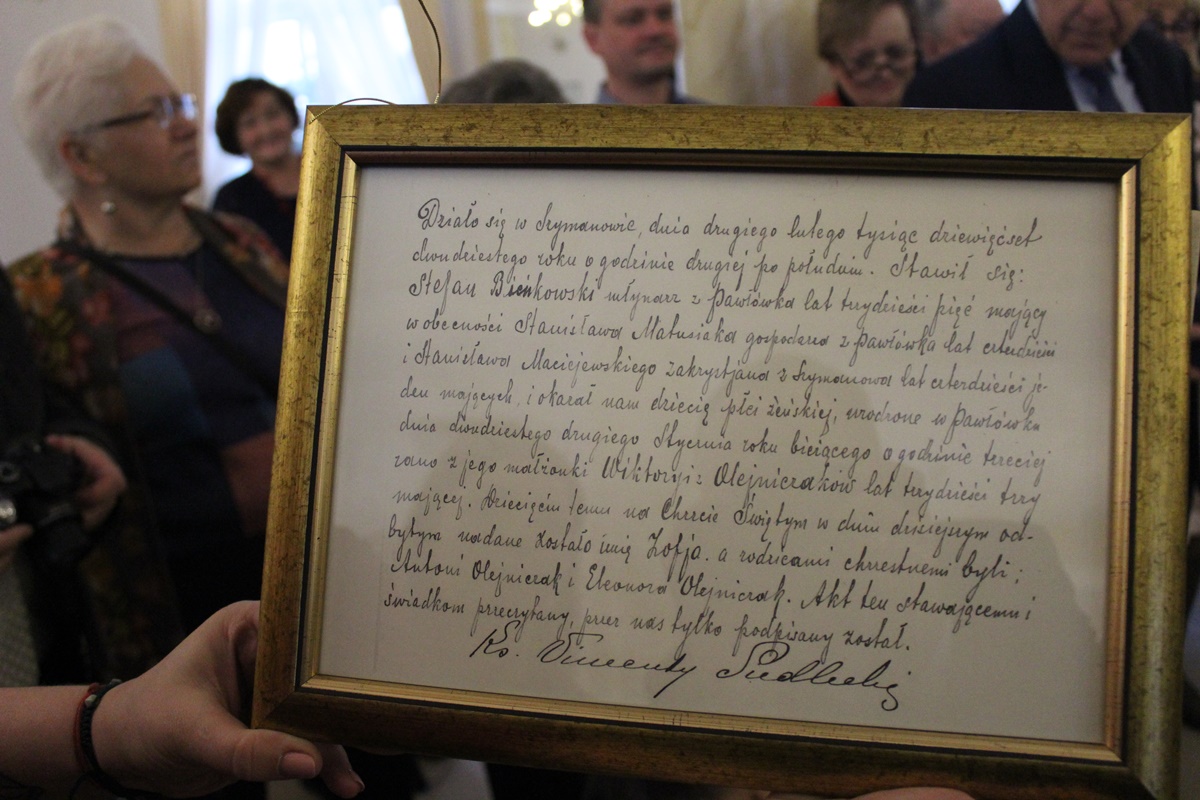 Działo się w Szymanowie, dnia drugiego lutego tysiąc dziewięćset
dwudziestego roku o godzinie drugiej po południu. Stawił się:
Stefan Bieńkowski młynarz z Pawłówka lat trzydzieści pięć mający
w obecności Stanisława Matusiaka gospodarza z Pawłówka lat czterdzieści
i Stanisława Maciejewskiego zakrystjana z Szymanowa lat czterdzieści je-
den mających, i okazał nam dziecię płci żeńskiej, urodzone w Pawłówku
dnia dwudziestego drugiego Stycznia roku bieżącego o godzinie trzeciej
rano z jego małżonki Wiktoryi z Olejniczaków lat trzydzieści trzy
mającej. Dziecięciu temu na Chrzcie Świętym w dniu dzisiejszym od-
bytym nadane zostało imię Zofja. a rodzicami chrzestnemi byli;
Antoni Olejniczak i Eleonora Olejniczak. Akt ten stawającemu i
świadkom przeczytany, przez nas tylko podpisany został.
Ks. Vincenty